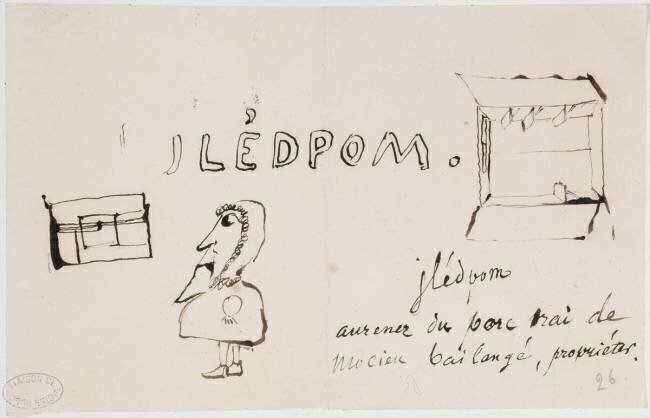 JLÉDPOM.
jlédpom
aurener du porc trai de
mocieu bailangé, propriéter.
26.
MAISON DE